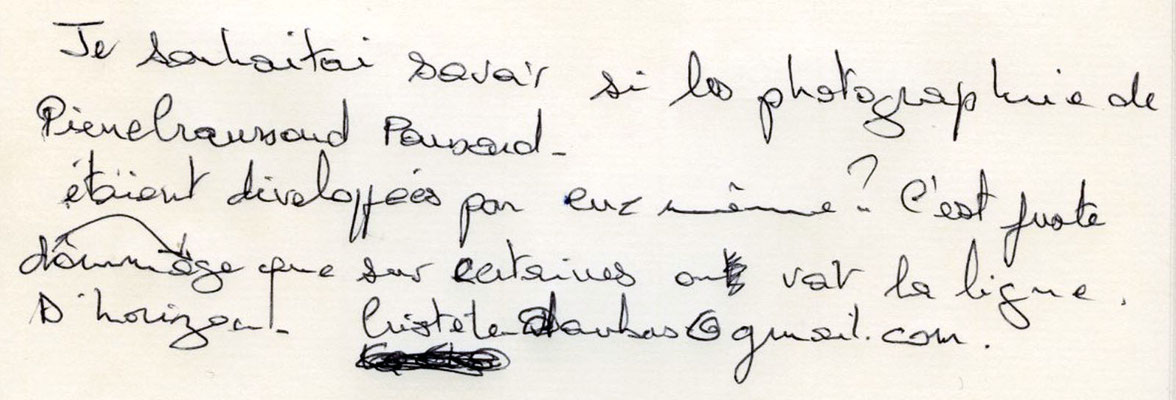 Je souhaitai savoir si les photographie de
Pierre
étaient développées par eux même? C'est juste
dommage que sur certaines on voit la ligne.
D'horizont. @gmail.com.